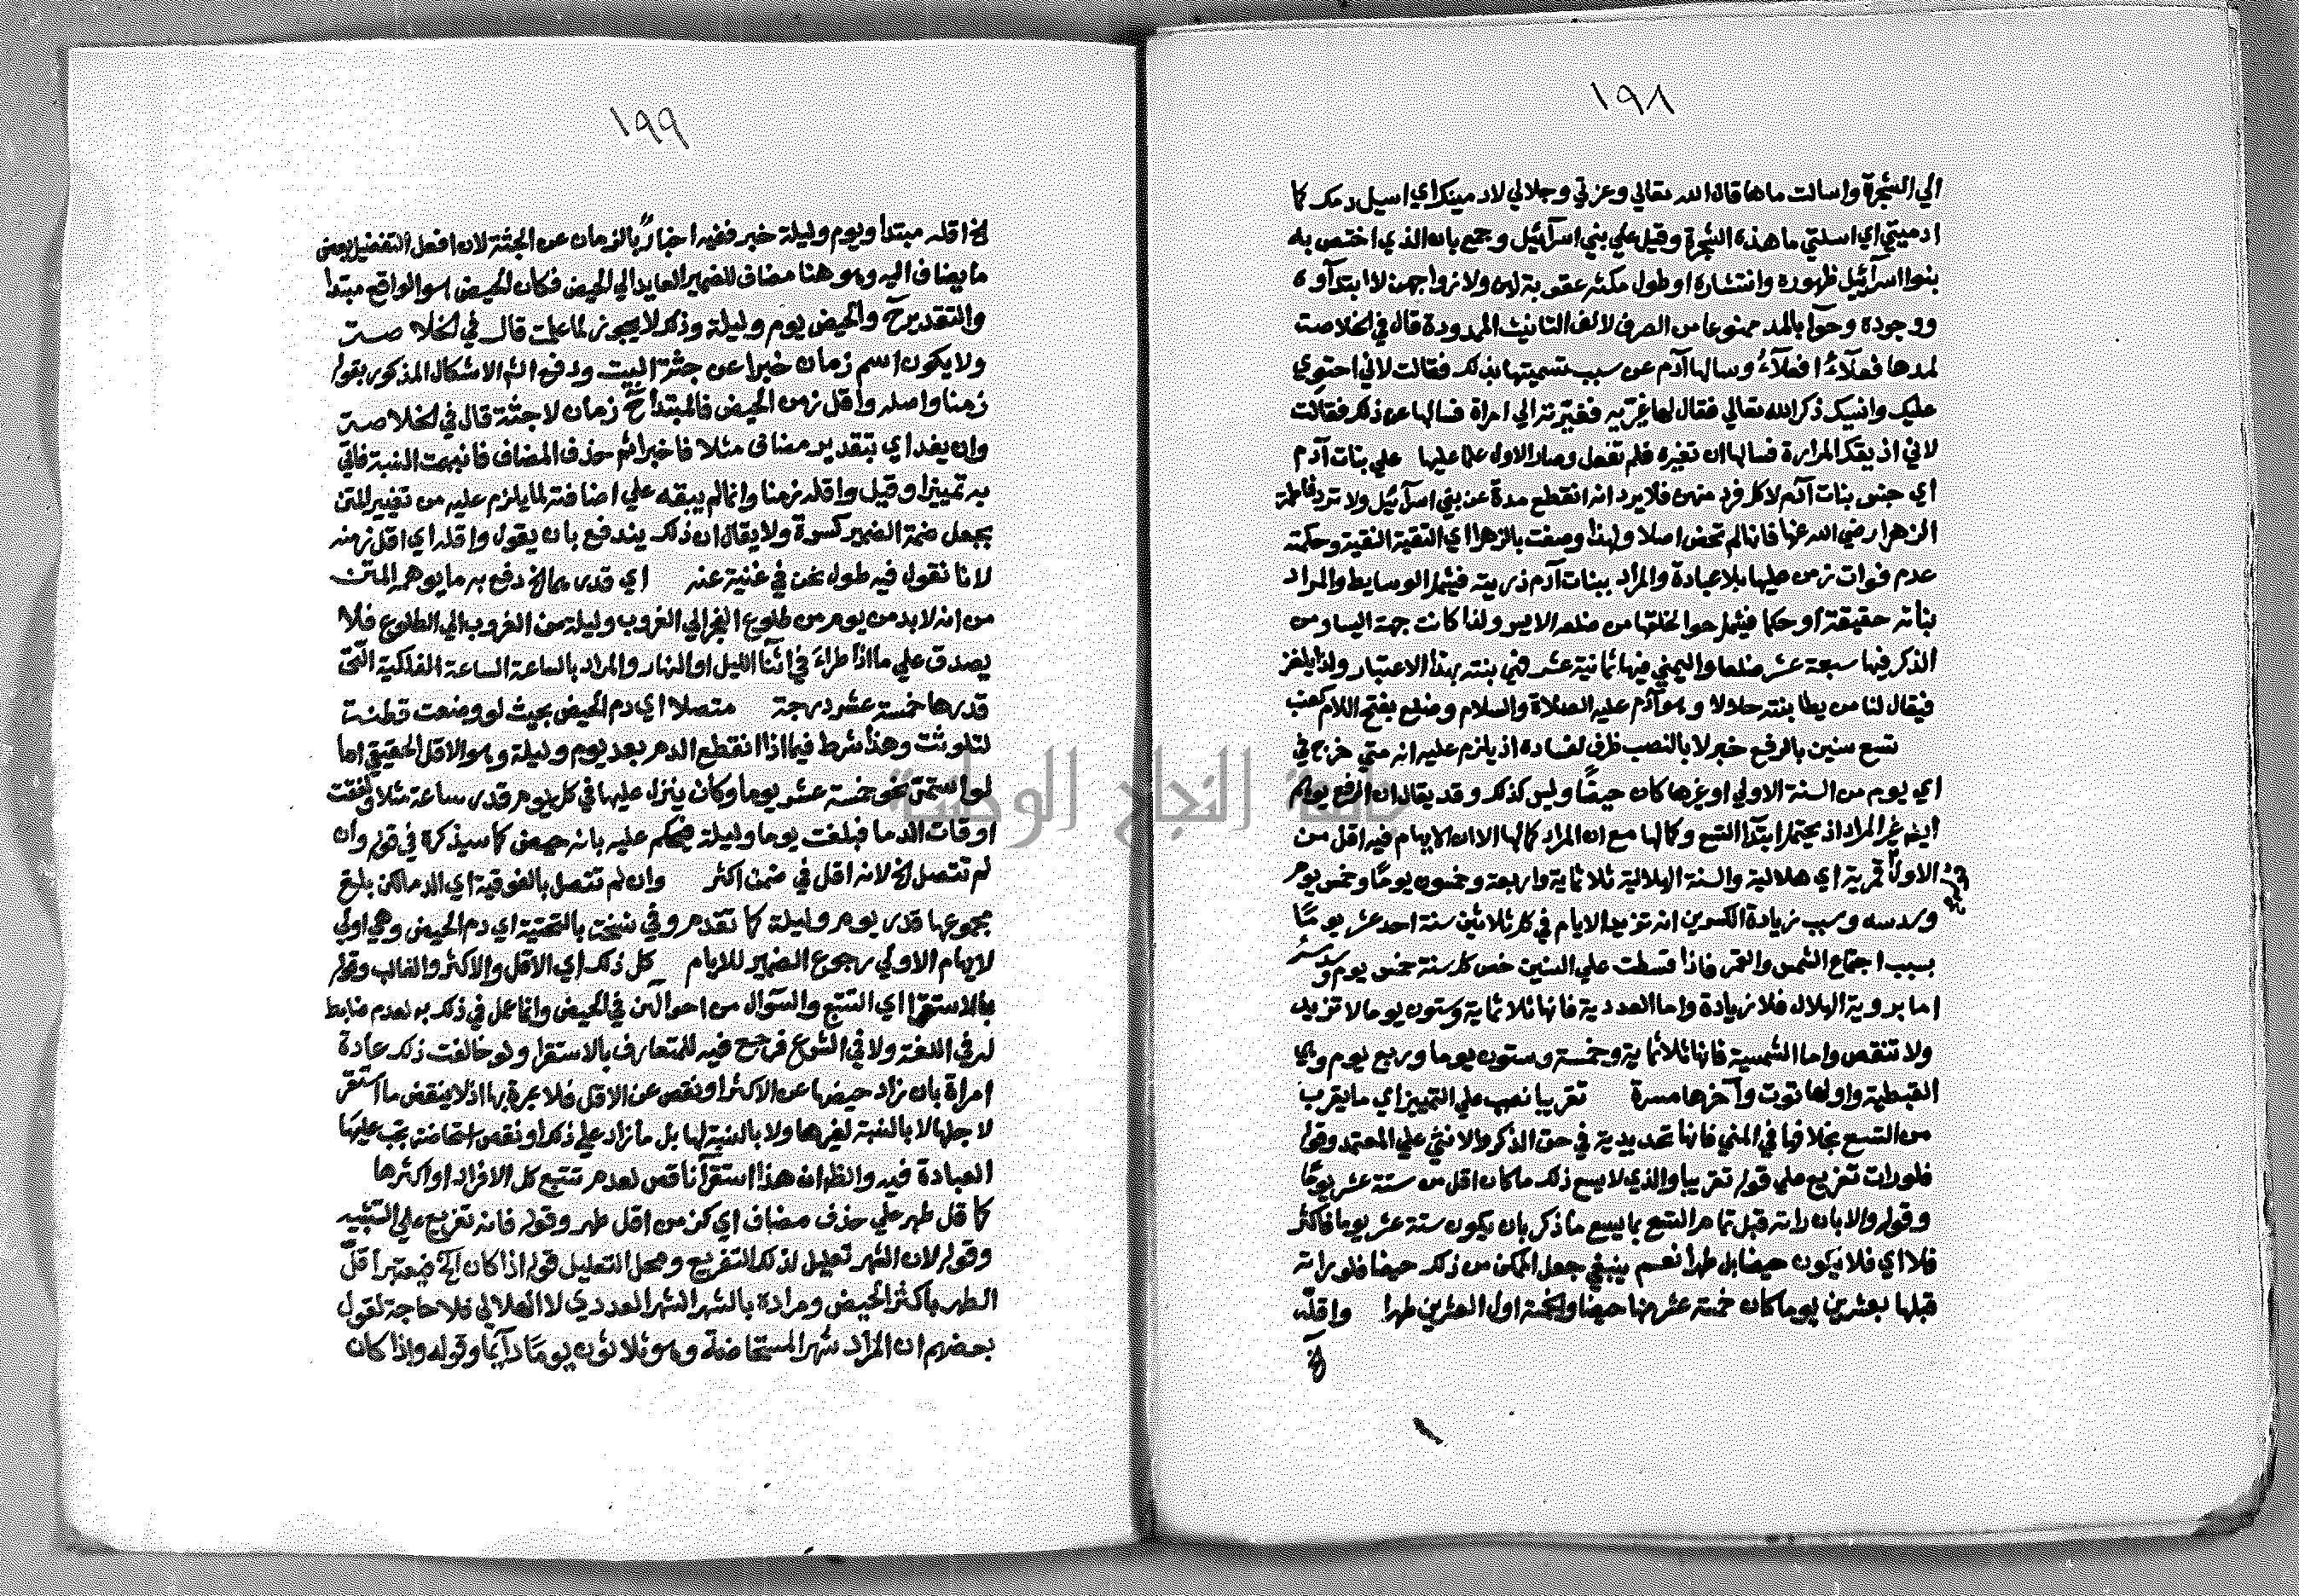 ١٩٨
الي الشجرة واسالت ماها قال الله تعالي وعزتي وجلالي لادمينك اي اسيل دمك كما
ادميتي اي اسلتي ما هذه الشجرة وقيل علي بني اسرآئيل وجمع بان الذي اختص به
بنوا اسرآئيل ظهوره وانتشاره او طول مكثه عقوبة لهن ولازواجهن لا ابتدآوه
ووجوده وحوآ بالمد ممنوعا من الصرف لالف التانيث الممدودة قال في الخلاصة
لمدها فعلآء افعلآء وسالها آدم عن سبب تسميتها بذلك فقالت لاني احتوي
عليك وانسيك ذكر الله تعالي فقال لها غيريه فغيرته الي امراة فسالها عن ذلك فقالت
لاني اذيقك المرارة فسالها ان تغيره فلم تفعل وصار الاول علما عليها علي بنات آدم
اي جنس بنات آدم لا كل فرد منهن فلا يرد انه انقطع مدة عن بني اسرآئيل ولا ترد فاطمة
الزهرا رضي الله عنها فانها لم تحض اصلا ولهذا وصفت بالزهرا اي التقية النقية وحكمته
عدم فوات زمن عليها بلا عبادة والمراد ببنات آدم ذريته فيشمل الوسايط والمراد
بناته حقيقة او حكما فيشمل حوا لخلقها من ضلعه الايسر ولذا كانت جهة اليسار من
الذكر فيها سبعة عشر ضلعا واليمني فيها ثمانية عشر فهي بنته بهذا الاعتبار ولذا يلغز
فيقال لنا من يطا بنته حلالا وهو آدم عليه الصلاة والسلام وضلع بفتح اللام كعنب
تسع سنين بالرفع خبر لا بالنصب ظرف لفساده اذ يلزم عليه انه متي خرج في
اي يوم من السنة الاولي او غيرها كان حيضًا وليس كذلك وقد يقال ان الرفع يوهم
ايضا غير المراد اذ يحتمل ابتدآ التسع وكمالها مع ان المراد كمالها الا ان الايهام فيه اقل من
الاول قمرية اي هلالية والسنة الهلالية ثلاثماية واربعة وخمسون يومًا وخمس يوم
وسدسه وسبب زيادة الكسرين انه تزيد الايام في كل ثلاثين سنة احد عشر يومًا
بسبب اجتماع الشمس والقمر فاذا قسطت علي السنين خص كل سنة خمس يوم وسدسه
اما بروية الهلال فلا زيادة واما العددية فانها ثلاثماية وستون يوما لا تزيد
ولا تنقص واما الشمسية فانها ثلاثماية وخمسة وستون يوما وربع يوم وهي
القبطية واولها توت وآخرها مسرة تقريبا نصب علي التمييز اي ما يقرب
من التسع بخلافها في المني فانها تحديدية في حق الذكر والانثي علي المعتمد وقوله
فلو رات تفريع علي قوله تقريبا والذي لا يسع ذلك ما كان اقل من ستة عشر يومًا
وقوله والا بان راته قبل تمام التسع بما يسع ما ذكر بان يكون ستة عشر يوما فاكثر
فلا اي فلا يكون حيضا بل طهرا نعم ينبغي جعل الممكن من ذلك حيضا فلو راته
قبلها بعشرين يوما كان خمسة عشر منها حيضا والخمسة اول العشرين طهرا واقله
الخ
١٩٩
الخ اقله مبتدا ويوم وليلة خبر ففيه اخبارٌ بالزمان عن الجثة لان افعل التفضيل بعض
ما يضاف اليه وهو هنا مضاف للضمير العايد الي الحيض فكان الحيض هو الواقع مبتدا
والتقدير ح والحيض يوم وليلة وذلك لا يجوز لما علمت قال في الخلاصة
ولا يكون اسم زمان خبرا عن جثة البيت ودفع الش الاشكال المذكور بقوله
زمنا واصله واقل زمن الحيض فالمبتدا ح زمان لا جثة قال في الخلاصة
وان يفد اي بتقدير مضاف مثلا فاخبرا ثم حذف المضاف فانبهمت النسبة فاتي
به تمييزا وقيل واقله زمنا وانما لم يبقه علي اضافته لما يلزم عليه من تغيير المتن
بجعل ضمة الضمير كسرة ولا يقال ان ذلك يندفع بان يقول واقله اي اقل زمنه
لانا نقول فيه طول نحن في غنية عنه اي قدرهما الخ دفع به ما يوهمه المتن
من انه لابد من يوم من طلوع الفجر الي الغروب وليلة من الغروب الي الطلوع فلا
يصدق علي ما اذا طراء في اثنآ الليل او النهار والمراد بالساعة الساعة الفلكية التي
قدرها خمسة عشر درجة متصلا اي دم الحيض بحيث لو وضعت قطنة
لتلوثت وهذا شرط فيما اذا انقطع الدم بعد يوم وليلة وهو الاقل الحقيقي اما
لو استمر نحو خمسة عشر يوما وكان ينزل عليها في كل يوم قدر ساعة مثلا ولفقت
اوقات الدما فبلغت يوما وليلة فيحكم عليه بانه حيض كما سيذكره في قوله وان
لم تتصل الخ لانه اقل في ضمن اكثر وان لم تتصل بالفوقية اي الدما لكن بلغ
مجموعها قدر يوم وليلة كما تقدم وفي نسخة بالتحتية اي دم الحيض وهي اولي
لايهام الاولي رجوع الضمير للايام كل ذلك اي الاقل والاكثر والغالب وقوله
بالاستقرا اي التتبع والسوال من احوالهن في الحيض وانما عمل في ذلك به لعدم ضابط
له في اللغة ولا في الشرع فرجع فيه للمتعارف بالاستقرا ولو خالفت ذلك عادة
امراة بان زاد حيضها عن الاكثر او نقص عن الاقل فلا عبرة بها اذ لا ينقض ما استقر
لاجلها لا بالنسبة لغيرها ولا بالنسبة لها بل ما زاد علي ذلك او نقص استحاضة يجب عليها
العبادة فيه والظ ان هذا استقرآ ناقص لعدم تتبع كل الافراد او اكثرها
كاقل طهر علي حذف مضاف اي كزمن اقل طهر وقوله فانه تفريع علي التشبيه
وقوله لان الشهر تعليل لذلك التفريع ومحل التعليل قوله اذا كان الخ فيعتبر اقل
الطهر باكثر الحيض ومراده بالشهر الشهر العددي لا الهلالي فلا حاجة لقول
بعضهم ان المراد شهر المستحاضة وهو ثلاثون يومًا دآيمًا وقوله واذا كان